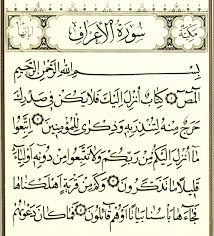 مكية سورة الأعراف آياتها
بِسْمِ ٱللَّهِ ٱلرَّحْمَٰنِ ٱلرَّحِيمِ
الٓمٓصٓ ۝ كِتَٰبٌ أُنزِلَ إِلَيْكَ فَلَا يَكُن فِى صَدْرِكَ
حَرَجٌ مِّنْهُ لِتُنذِرَ بِهِۦ وَذِكْرَىٰ لِلْمُؤْمِنِينَ ۝ ٱتَّبِعُوا۟
مَآ أُنزِلَ إِلَيْكُم مِّن رَّبِّكُمْ وَلَا تَتَّبِعُوا۟ مِن دُونِهِۦٓ أَوْلِيَآءَ
قَلِيلًا مَّا تَذَكَّرُونَ ۝ وَكَم مِّن قَرْيَةٍ أَهْلَكْنَٰهَا
فَجَآءَهَا بَأْسُنَا بَيَٰتًا أَوْ هُمْ قَآئِلُونَ ۝ فَمَا كَانَ دَعْوَىٰهُمْ